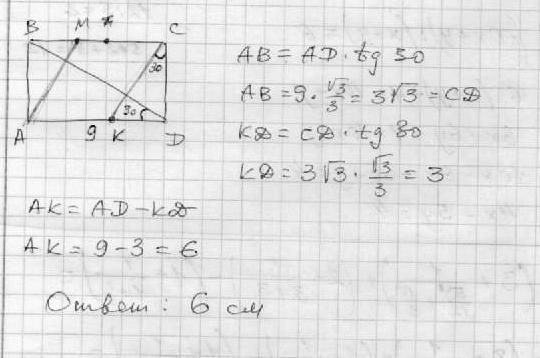 B M * C
30
30
A 9 K D
AB = AD · tg 30
AB = 9 · √3/3 = 3√3 = CD
KD = CD · tg 30
KD = 3√3 · √3/3 = 3
AK = AD - KD
AK = 9 - 3 = 6
Ответ: 6 см